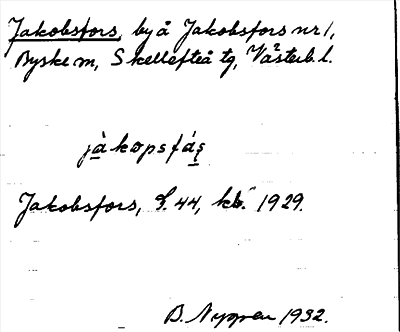 Jakobsfors, by å Jakobsfors nr 1,
Byske m, Skellefteå tg, Västerb. l.
jàkopsfáș
Jakobsfors, S. 44, kb. 1929.
B. Nygren 1932.